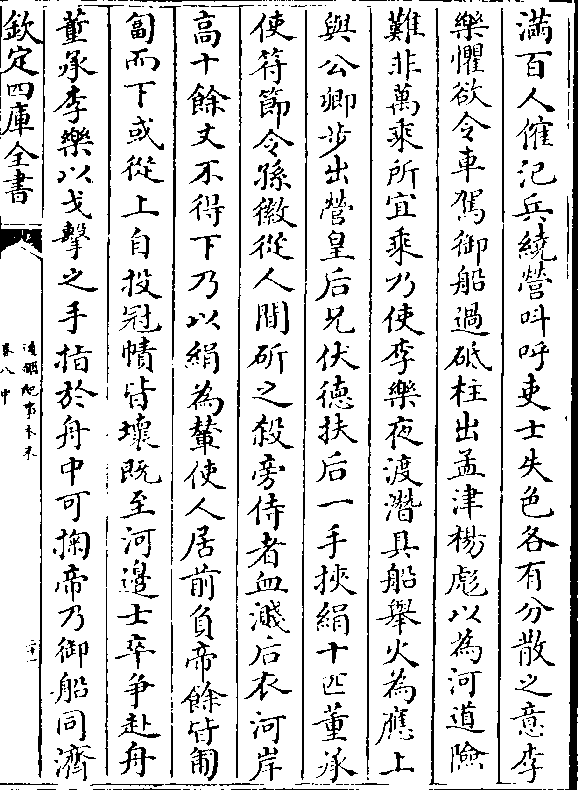 滿百人傕汜兵繞營叫呼吏士失色各有分散之意李
樂懼欲令車駕御船過砥柱出孟津楊彪以為河道險
難非萬乘所宜乘乃使李樂夜渡潛具船舉火為應上
與公卿步出營皇后兄伏德扶后一手挾絹十匹董承
使符節令孫徽從人間斫之殺旁侍者血濺后衣河岸
高十餘丈不得下乃以絹為輦使人居前負帝餘皆匍
匐而下或從上自投冠幘皆壞既至河邊士卒爭赴舟
董承李樂以戈擊之手指於舟中可掬帝乃御船同濟
欽定四庫全書
通鑑紀事本末
卷八中